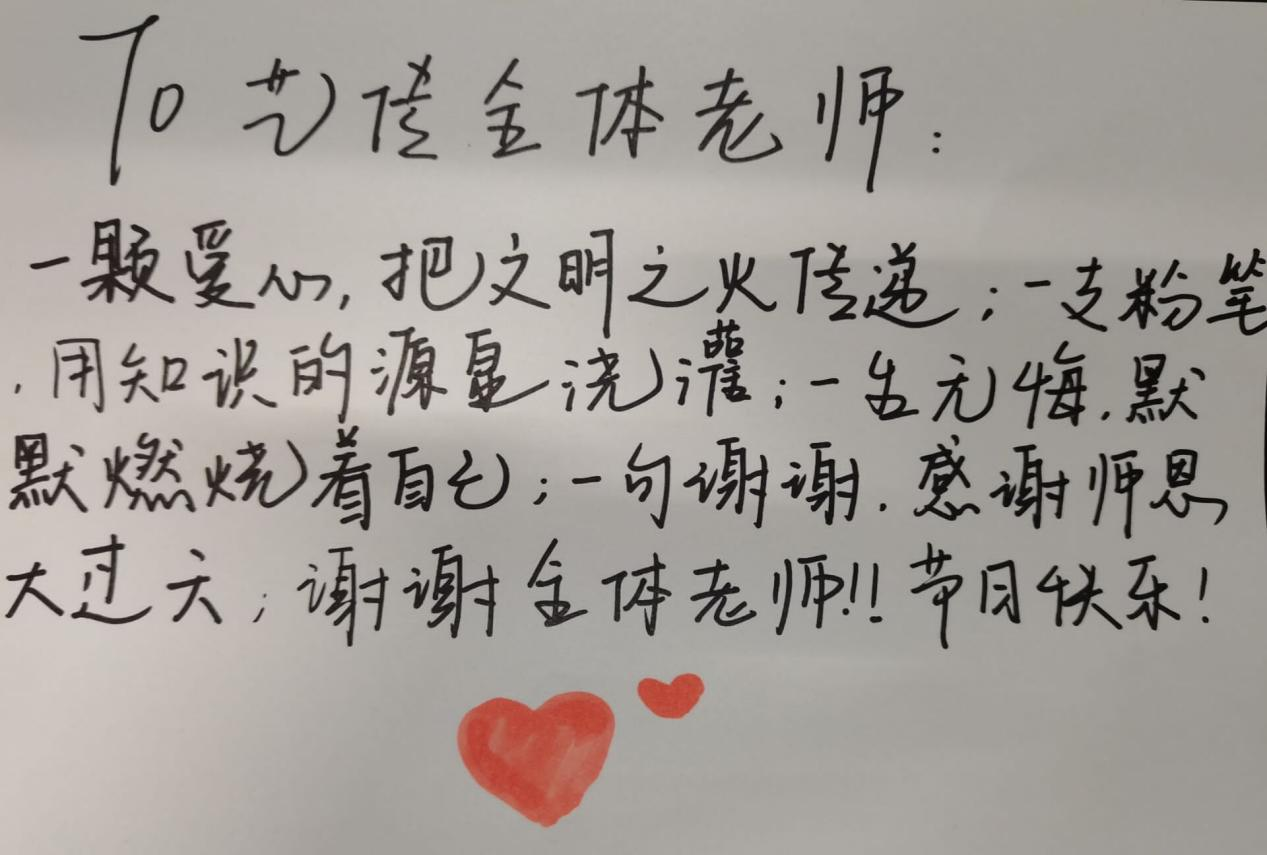 To 艺传全体老师：
一颗爱心，把文明之火传递；一支粉笔
，用知识的源泉浇灌；一生无悔，默
默燃烧着自己；一句谢谢，感谢师恩
大过天；谢谢全体老师!!节日快乐！